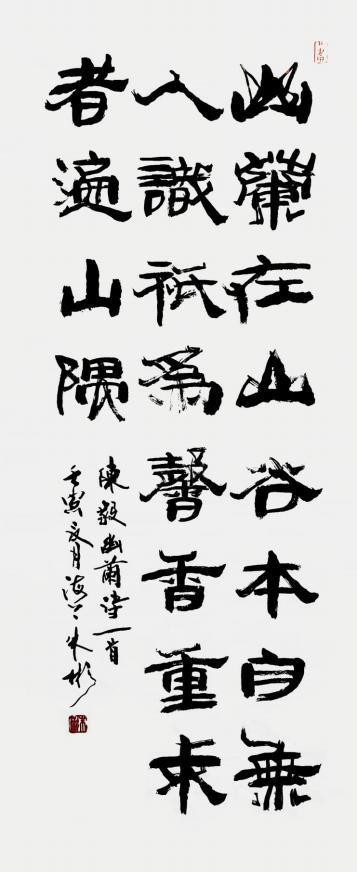 幽蘭在山谷本自無
人識祇為馨香重求
者遍山隅
陳毅幽蘭詩一首
壬寅夏月海上朱彬